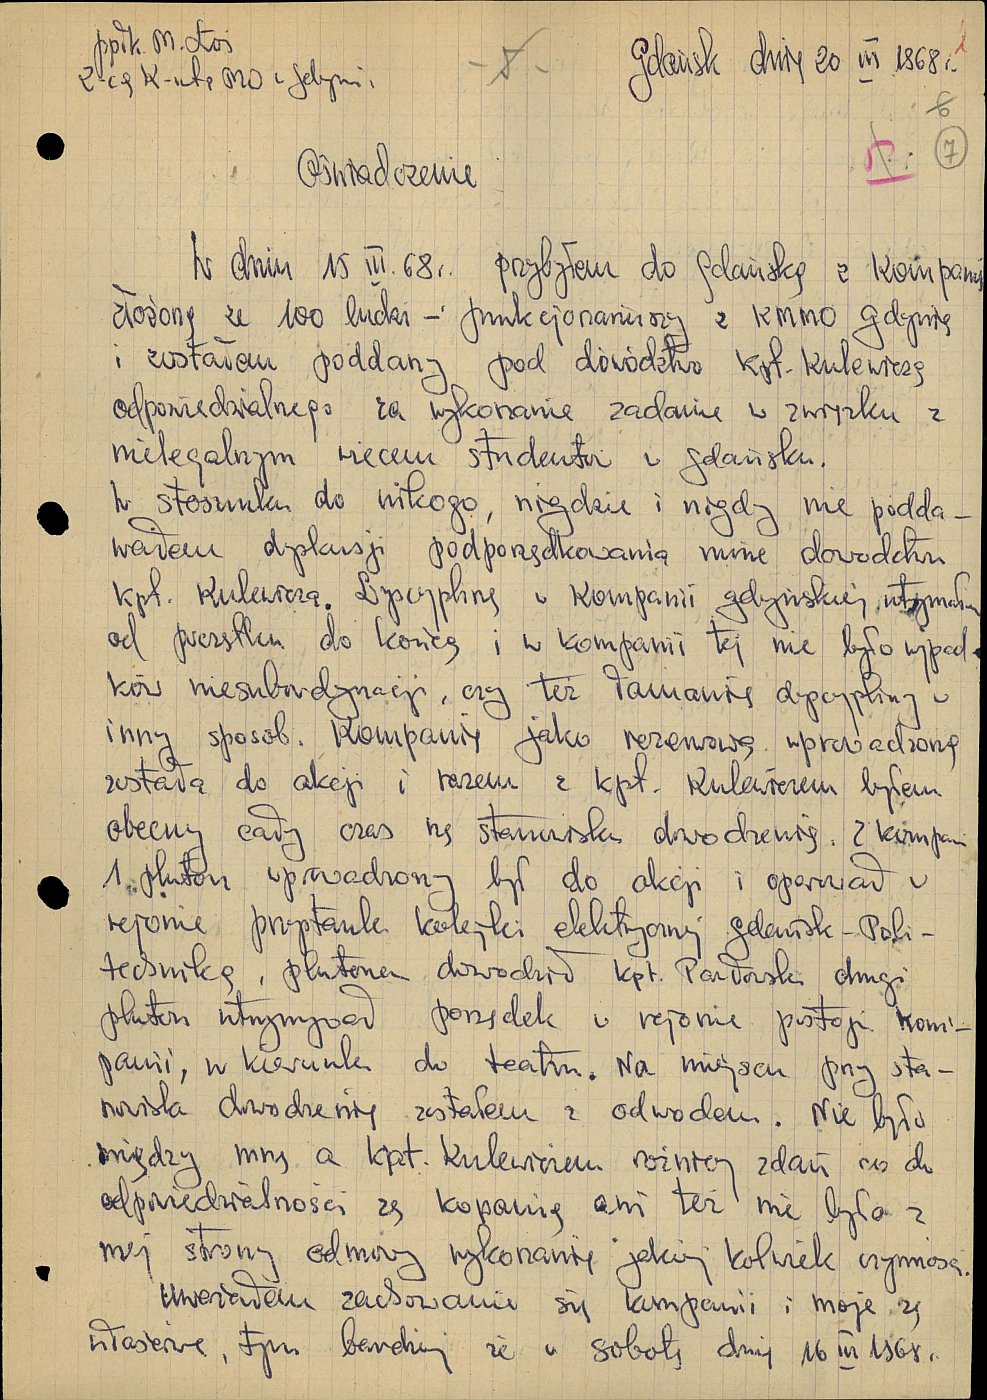 ppłk. M. Łoś
Z-ca K-nta MO w Gdyni.
Gdańsk dnia 20 III 1968 r.
1
6
7
Oświadczenie
W dniu 15 III. 68 r. przybyłem do Gdańska z Kompanią
złożoną ze 100 ludzi – funkcjonariuszy z KMMO Gdynia
i zostałem poddany pod dowództwo kpt. Kulewicza
odpowiedzialnego za wykonanie zadania w związku z
nielegalnym wiecem studentów w Gdańsku.
W stosunku do nikogo, nigdzie i nigdy nie podda-
wałem dyskusji podporządkowania mnie dowództwu
kpt. Kulewicza. Dyscyplinę w Kompanii gdyńskiej utrzymałem
od początku do końca i w kompanii tej nie było wypad-
ków niesubordynacji, czy też łamania dyscypliny w
inny sposób. Kompania jako rezerwowa wprowadzona
została do akcji i razem z kpt. Kulewiczem byłem
obecny cały czas na stanowisku dowodzenia. Z kompanii
1 pluton wprowadzony był do akcji i operował w
rejonie przystanku kolejki elektrycznej Gdańsk – Poli-
technika, plutonem dowodził kpt. Pawłowski drugi
pluton utrzymywał porządek w rejonie postoju kom-
panii, w kierunku do teatru. Na miejscu przy sta-
nowisku dowodzenia zostałem z odwodem. Nie było
między mną a kpt. Kulewiczem różnicy zdań co do
odpowiedzialności za kopanię ani też nie było z
mej strony odmowy wykonania jakiej kolwiek czynności.
Uważałem zachowanie się kompanii i moje za
właściwe, tym bardziej że w sobotę dnia 16 III 1968 r.